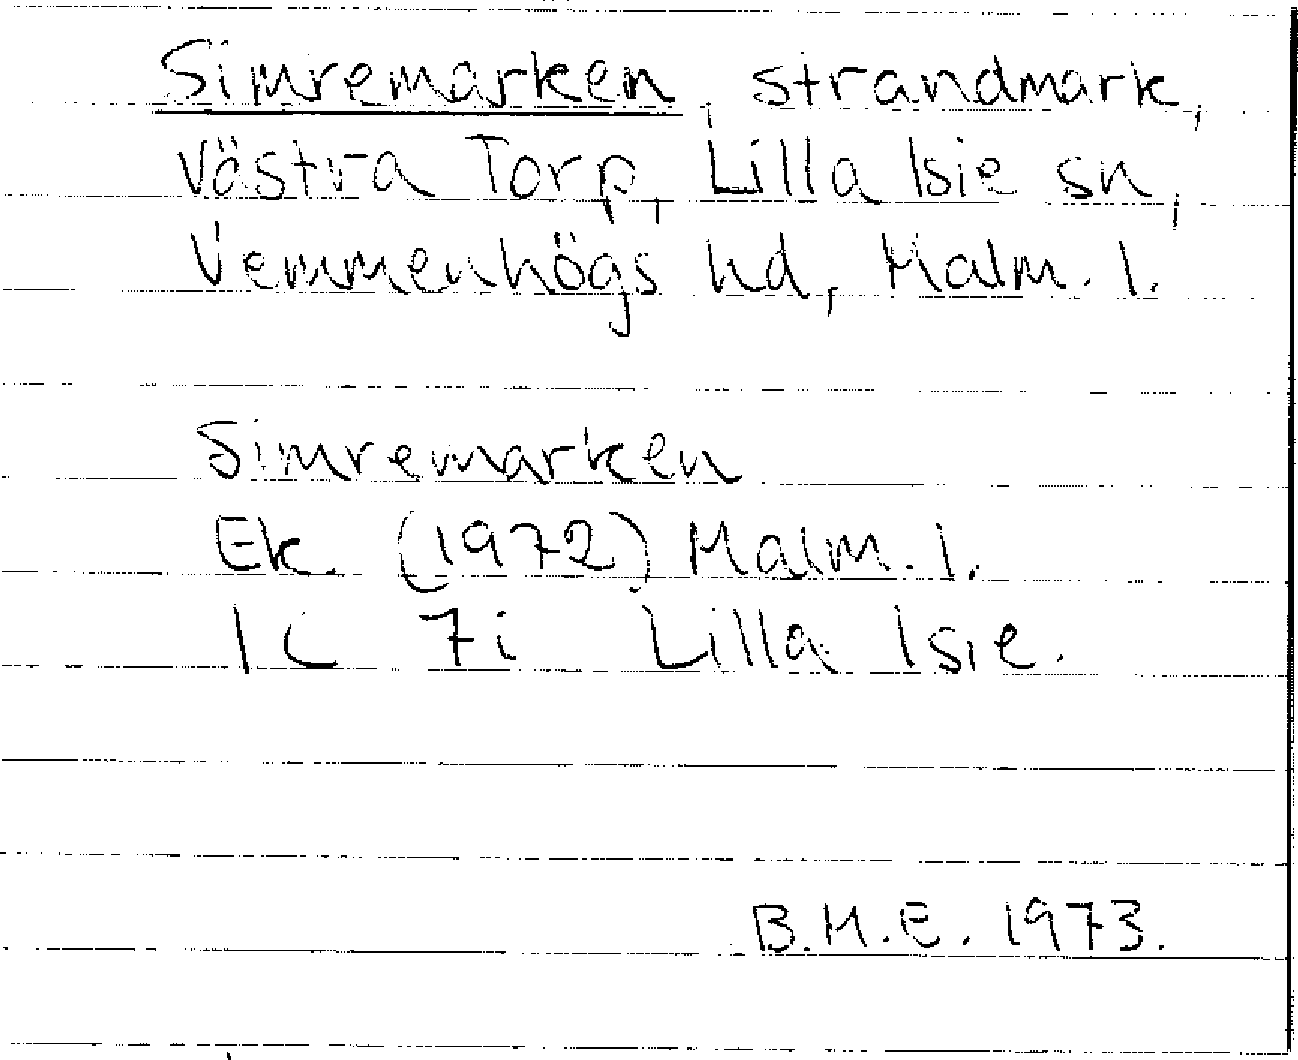 Simremarken, strandmark,
Västra Torp, Lilla Isie sn,
Vemmenhögs hd, Malm. l.
Simremarken
Ek (1972) Malm. l.
1C 7i Lilla Isie.
B.M.E. 1973.